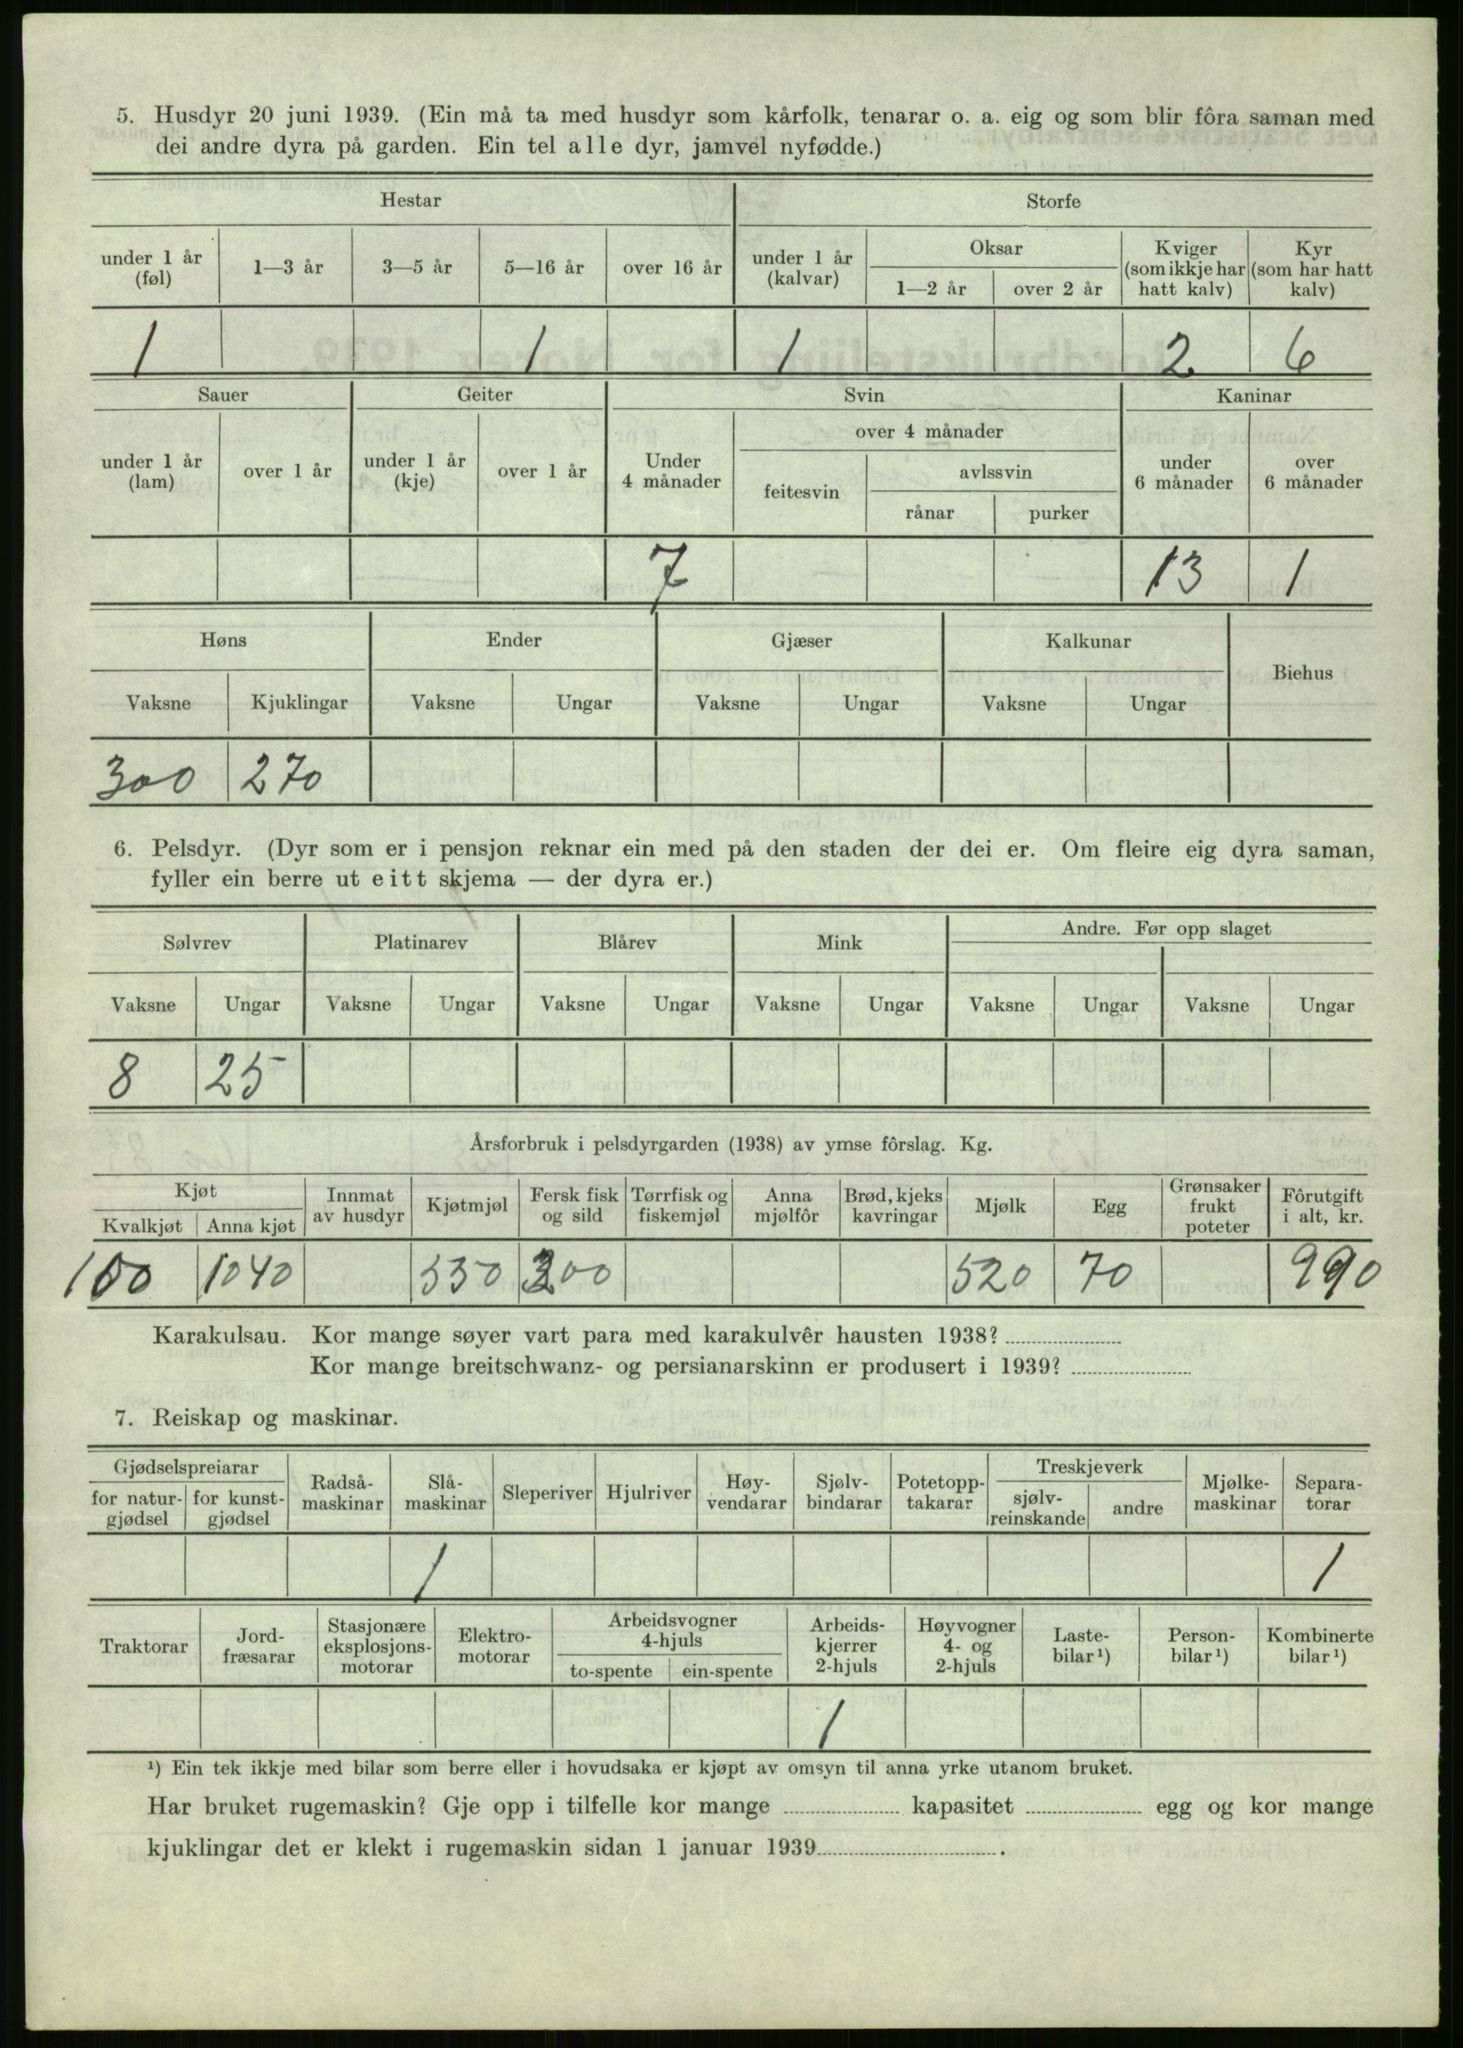 5. Husdyr 20 juni 1939. (Ein må ta med husdyr som kårfolk, tenarar o. a. eig og som blir fôra saman med
dei andre dyra på garden. Ein tel alle dyr, jamvel nyfødde.)
Hestar Storfe
under 1 år (føl) 1—3 år 3—5 år 5—16 år over 16 år under 1 år (kalvar) Oksar 1—2 år over 2 år Kviger (som ikkje har hatt kalv) Kyr (som har hatt kalv)
1 1 1 2 6
Sauer Geiter Svin Kaninar
under 1 år (lam) over 1 år under 1 år (kje) over 1 år Under 4 månader over 4 månader feitesvin avlssvin rånar purker under 6 månader over 6 månader
7 13 1
Høns Ender Gjæser Kalkunar Biehus
Vaksne Kjuklingar Vaksne Ungar Vaksne Ungar Vaksne Ungar
300 270
6. Pelsdyr. (Dyr som er i pensjon reknar ein med på den staden der dei er. Om fleire eig dyra saman,
fyller ein berre ut eitt skjema — der dyra er.)
Sølvrev Platinarev Blårev Mink Andre. Før opp slaget
Vaksne Ungar Vaksne Ungar Vaksne Ungar Vaksne Ungar Vaksne Ungar Vaksne Ungar
8 25
Årsforbruk i pelsdyrgarden (1938) av ymse fôrslag. Kg.
Kjøt Kvalkjøt Anna kjøt Innmat av husdyr Kjøtmjøl Fersk fisk og sild Tørrfisk og fiskemjøl Anna mjølfôr Brød, kjeks kavringar Mjølk Egg Grønsaker frukt poteter Fôrutgift i alt, kr.
100 1040 550 300 520 70 990
Karakulsau. Kor mange søyer vart para med karakulvêr hausten 1938?
Kor mange breitschwanz- og persianarskinn er produsert i 1939?
7. Reiskap og maskinar.
Gjødselspreiarar for natur-gjødsel for kunst-gjødsel Radså-maskinar Slå-maskinar Sleperiver Hjulriver Høy-vendarar Sjølv-bindarar Potetopp-takarar Treskjeverk sjølv-reinskande andre Mjølke-maskinar Separa-torar
1 1
Traktorar Jord-fræsarar Stasjonære eksplosjons-motorar Elektro-motorar Arbeidsvogner 4-hjuls to-spente ein-spente Arbeids-kjerrer 2-hjuls Høyvogner 4- og 2-hjuls Laste-bilar¹) Person-bilar¹) Kombinerte bilar¹)
1
¹) Ein tek ikkje med bilar som berre eller i hovudsaka er kjøpt av omsyn til anna yrke utanom bruket.
Har bruket rugemaskin? Gje opp i tilfelle kor mange kapasitet egg og kor mange
kjuklingar det er klekt i rugemaskin sidan 1 januar 1939 .